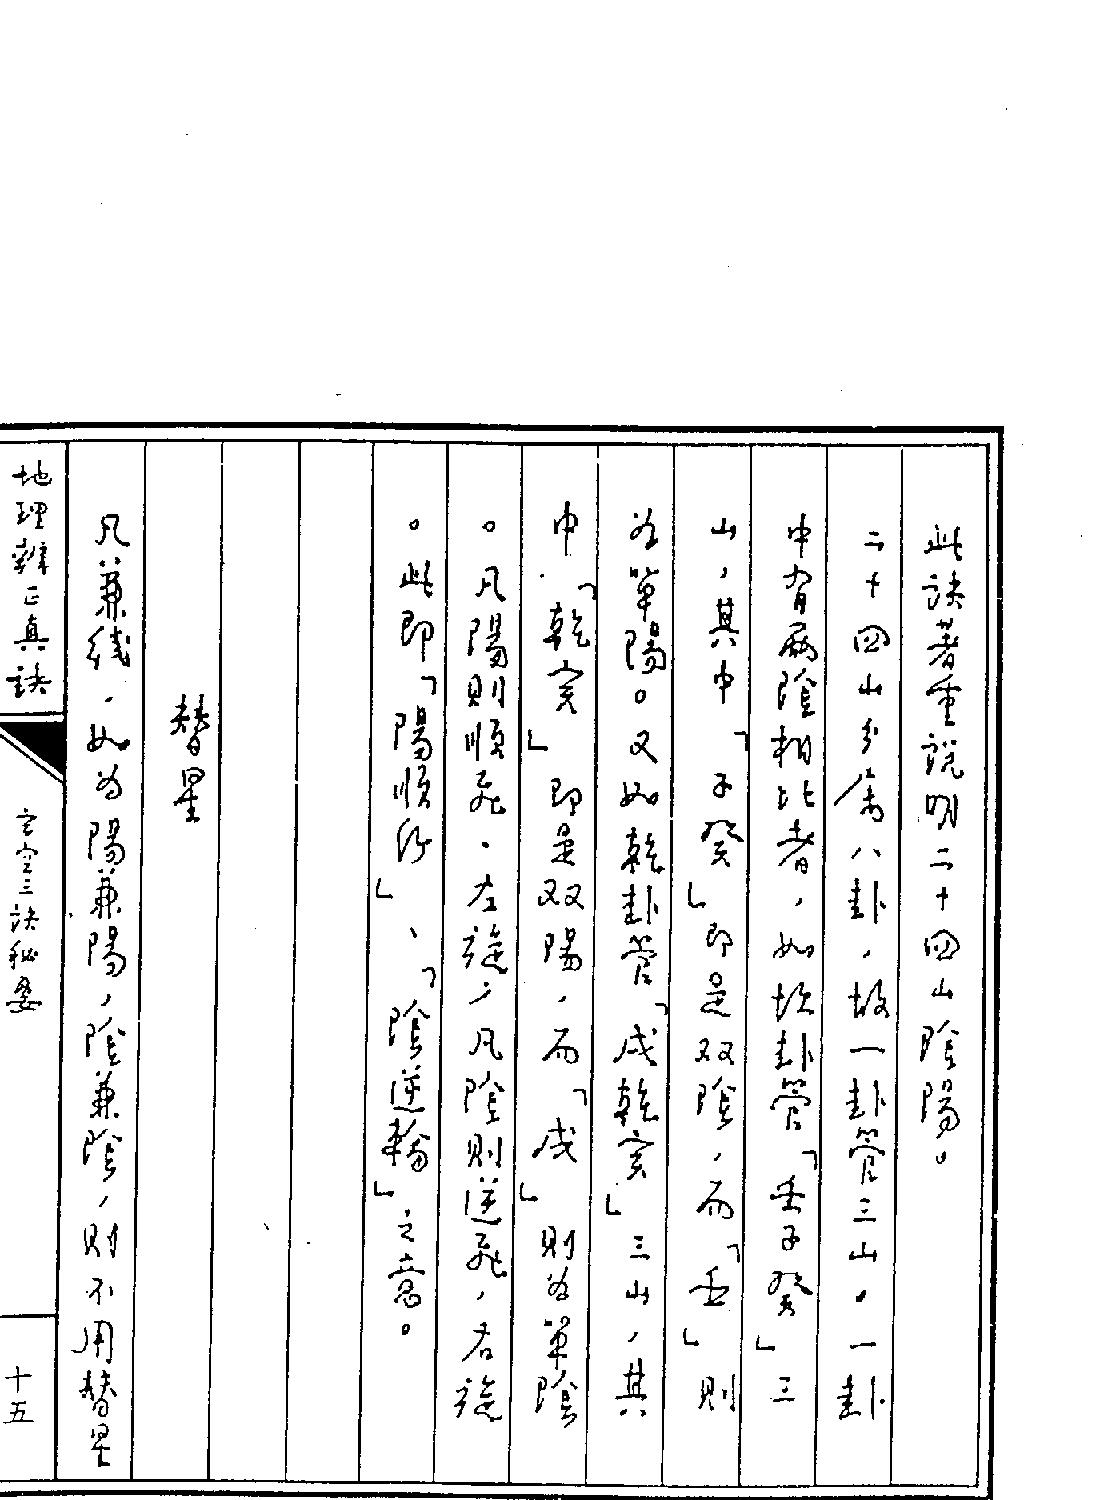 此訣著重說明二十四山陰陽。
二十四山分屬八卦，故一卦管三山。一卦
中有兩陰相比者，如坎卦管「壬子癸」三
山，其中「子癸」即是双陰，而「壬」則
為單陽。又如乾卦管「戌乾亥」三山，其
中「乾亥」即是双陽，而「戌」則為單陰
。凡陽則順飛、左旋，凡陰則逆飛，右旋
。此即「陽順行」、「陰逆輪」之意。
替星
凡兼线，如為陽兼陽，陰兼陰，則不用替星
地理辨正真訣
玄空三訣秘要
十五